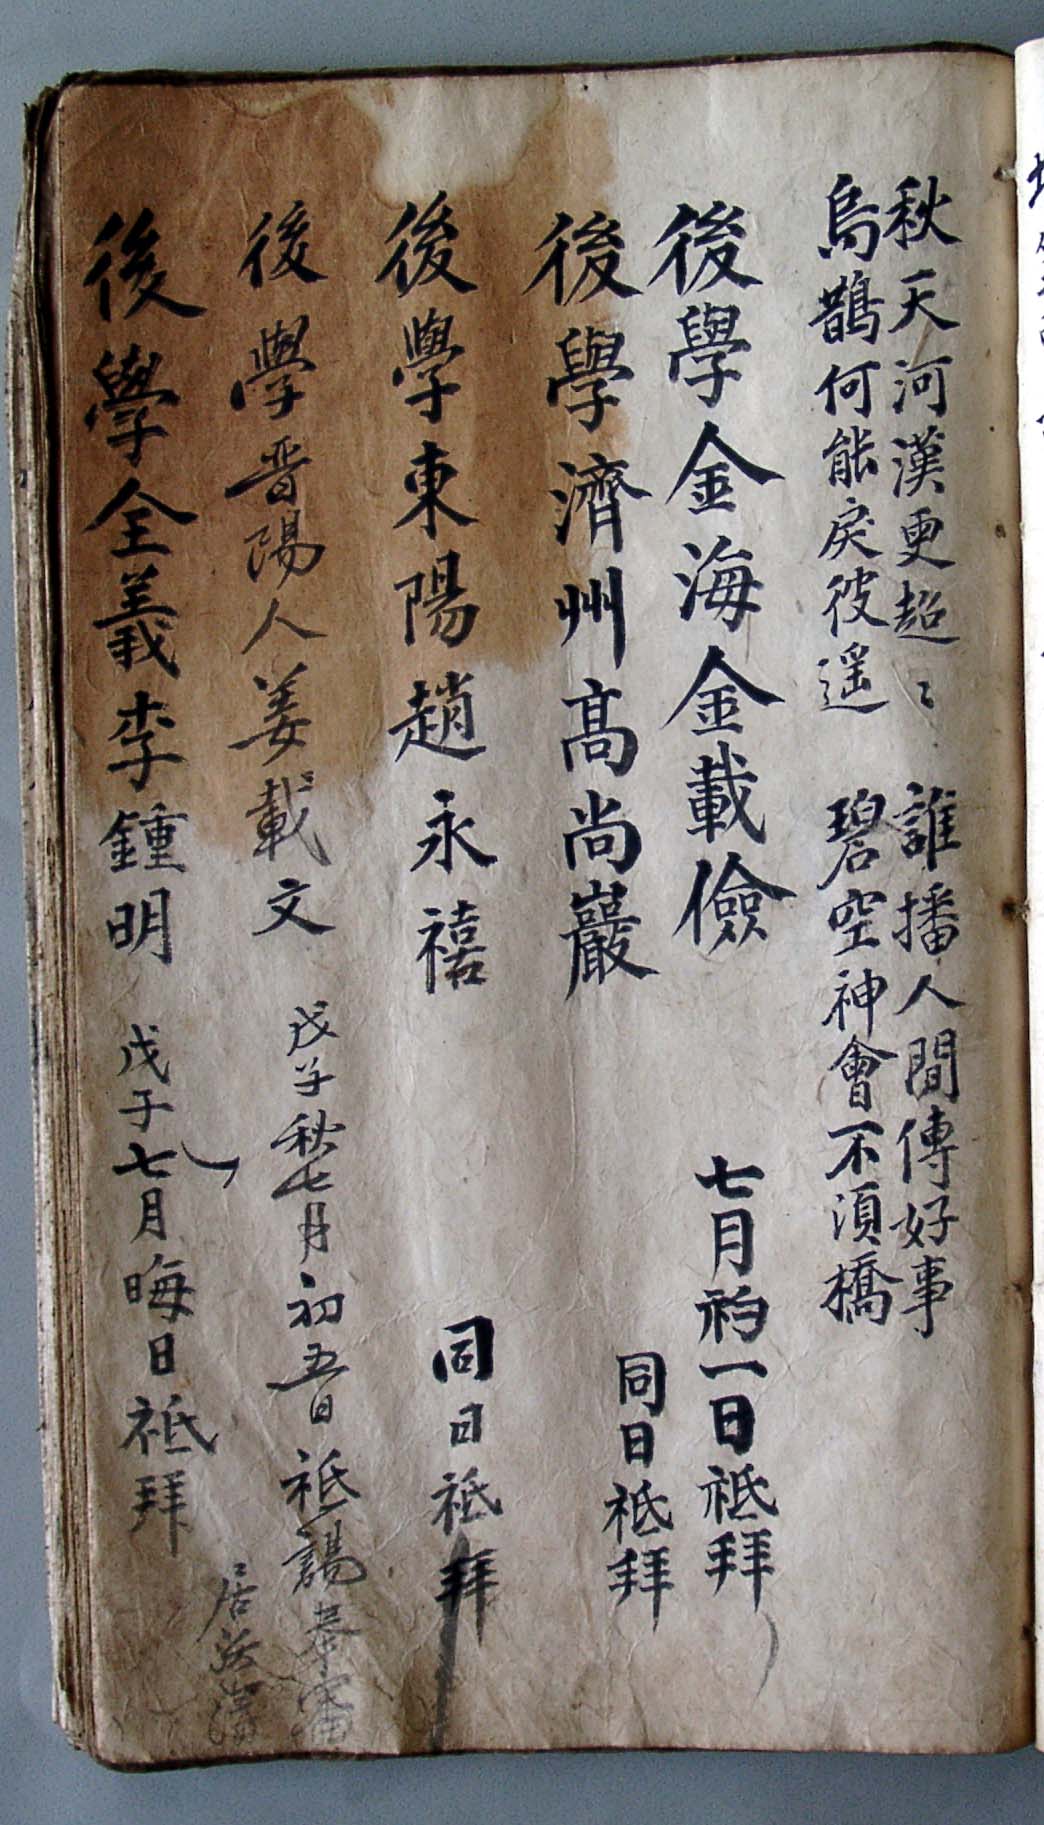 秋天河漢更超〻 誰播人間傳好事
烏鵲何能戾彼遥 碧空神會不湏橋
後學金海金載儉 七月初一日祗拜
後學濟州髙尚巖 同日祗拜
後學東陽趙永禧 同日祗拜
後學晋陽人姜載文 戊子秋七月初五日祗謁奉審
居
後學全義李鍾明 戊子七月晦日祗拜